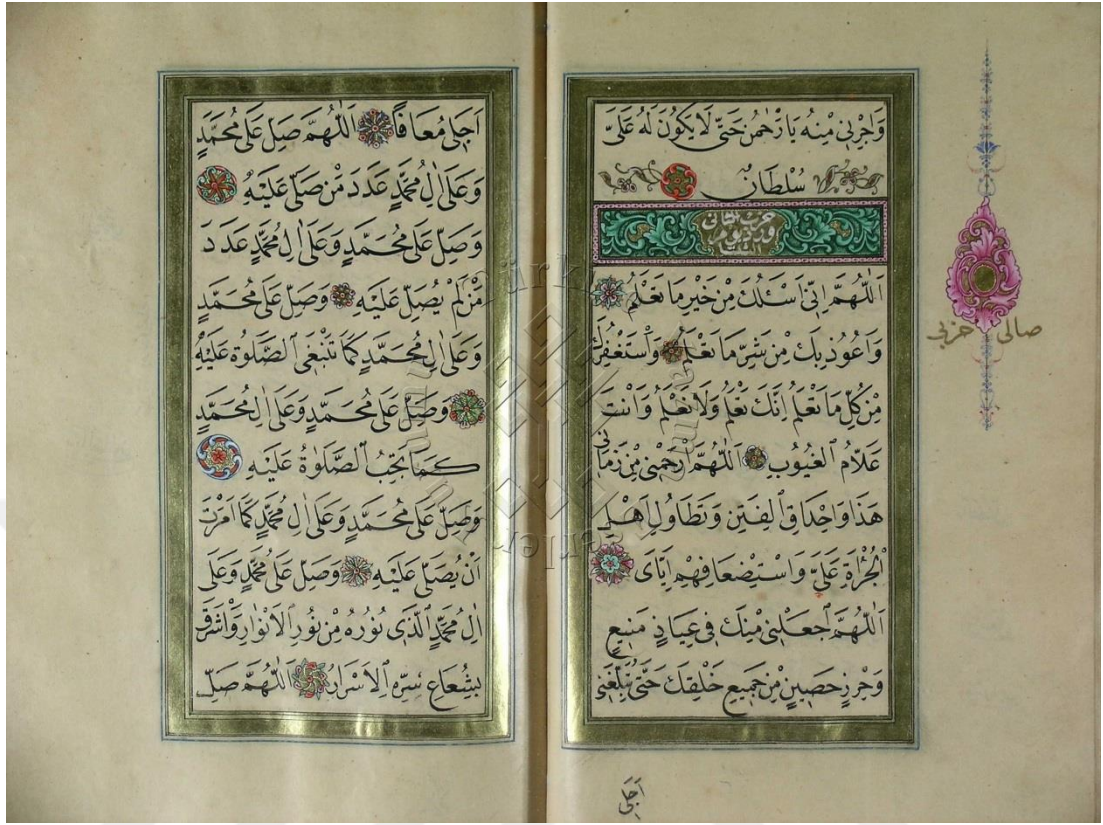 وَاَجِرْنِي مِنْهُ يَا رَحْمٰنُ حَتّٰى لَا يَكُونَ لَهُ عَلَيَّ
سُلْطَانٌ
حزب
اَللّٰهُمَّ اِنّٖى اَسْئَلُكَ مِنْ خَيْرِ مَا تَعْلَمُ
وَاَعُوذُ بِكَ مِنْ شَرِّ مَا تَعْلَمُ وَاَسْتَغْفِرُكَ
مِنْ كُلِّ مَا تَعْلَمُ اِنَّكَ تَعْلَمُ وَلَا نَعْلَمُ وَاَنْتَ
عَلَّامُ الْغُيُوبِ اَللّٰهُمَّ ارْحَمْنٖى مِنْ زَمَانٖى
هٰذَا وَاِحْدَاقِ الْفِتَنِ وَتَطَاوُلِ اَهْلِ
الْجُرْاَةِ عَلَيَّ وَاسْتِضْعَافِهِمْ اِيَّاىَ
اَللّٰهُمَّ اجْعَلْنٖى مِنْكَ فٖى عِيَاذٍ مَنٖيعٍ
وَحِرْزٍ حَصٖينٍ مِنْ جَمٖيعِ خَلْقِكَ حَتّٰى تُبَلِّغَنٖى
اَجَلٖى
صالى حزبى
اَجَلٖى مُعَافًا اَللّٰهُمَّ صَلِّ عَلٰى مُحَمَّدٍ
وَعَلٰى اٰلِ مُحَمَّدٍ عَدَدَ مَنْ صَلّٰى عَلَيْهِ
وَصَلِّ عَلٰى مُحَمَّدٍ وَعَلٰى اٰلِ مُحَمَّدٍ عَدَدَ
مَنْ لَمْ يُصَلِّ عَلَيْهِ وَصَلِّ عَلٰى مُحَمَّدٍ
وَعَلٰى اٰلِ مُحَمَّدٍ كَمَا تَنْبَغِى الصَّلٰوةُ عَلَيْهِ
وَصَلِّ عَلٰى مُحَمَّدٍ وَعَلٰى اٰلِ مُحَمَّدٍ
كَمَا يَجِبُ الصَّلٰوةُ عَلَيْهِ
وَصَلِّ عَلٰى مُحَمَّدٍ وَعَلٰى اٰلِ مُحَمَّدٍ كَمَا اَمَرْتَ
اَنْ يُصَلّٰى عَلَيْهِ وَصَلِّ عَلٰى مُحَمَّدٍ وَعَلٰى
اٰلِ مُحَمَّدٍ الَّذٖى نُورُهُ مِنْ نُورِ الْاَنْوَارِ وَاَشْرَقَ
بِشُعَاعِ سِرِّهِ الْاَسْرَارُ اَللّٰهُمَّ صَلِّ